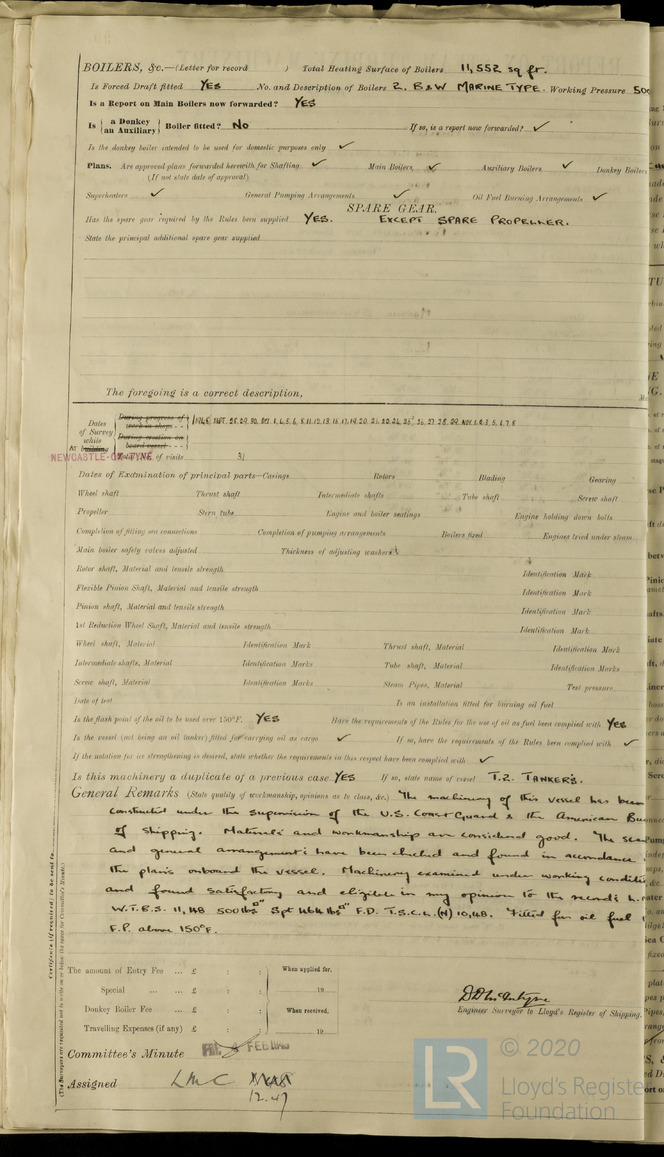 BOILERS, &c.—(Letter for record ) Total Heating Surface of Boilers 11,552 sq ft.
Is Forced Draft fitted YES No. and Description of Boilers 2. B&W MARINE TYPE. Working Pressure 500
Is a Report on Main Boilers now forwarded? YES
Is { a Donkey / an Auxiliary } Boiler fitted? NO If so, is a report now forwarded? ✓
Is the donkey boiler intended to be used for domestic purposes only ✓
Plans. Are approved plans forwarded herewith for Shafting ✓ Main Boilers ✓ Auxiliary Boilers ✓ Donkey Boilers
(If not state date of approval)
Superheaters ✓ General Pumping Arrangements ✓ Oil Fuel Burning Arrangements ✓
SPARE GEAR.
Has the spare gear required by the Rules been supplied YES. EXCEPT SPARE PROPELLER.
State the principal additional spare gear supplied
The foregoing is a correct description,
Dates of Survey while building
During progress of work in shops - -
During erection on board vessel - - -
Total No. of visits 31
At NEWCASTLE-ON-TYNE
Dates of Examination of principal parts—Casings Rotors Blading Gearing
Wheel shaft Thrust shaft Intermediate shafts Tube shaft Screw shaft
Propeller Stern tube Engine and boiler seatings Engine holding down bolts
Completion of fitting sea connections Completion of pumping arrangements Boilers fixed Engines tried under steam
Main boiler safety valves adjusted Thickness of adjusting washers
Rotor shaft, Material and tensile strength Identification Mark
Flexible Pinion Shaft, Material and tensile strength Identification Mark
Pinion shaft, Material and tensile strength Identification Mark
1st Reduction Wheel Shaft, Material and tensile strength Identification Mark
Wheel shaft, Material Identification Mark Thrust shaft, Material Identification Mark
Intermediate shafts, Material Identification Marks Tube shaft, Material Identification Marks
Screw shaft, Material Identification Marks Steam Pipes, Material Test pressure
Date of test Is an installation fitted for burning oil fuel
Is the flash point of the oil to be used over 150°F. YES Have the requirements of the Rules for the use of oil as fuel been complied with YES
Is the vessel (not being an oil tanker) fitted for carrying oil as cargo ✓ If so, have the requirements of the Rules been complied with ✓
If the notation for ice strengthening is desired, state whether the requirements in this respect have been complied with ✓
Is this machinery a duplicate of a previous case YES If so, state name of vessel T.2. TANKERS.
General Remarks (State quality of workmanship, opinions as to class, &c.) The machinery of this vessel has been
constructed under the supervision of the U.S. Coast Guard & the American
of Shipping. Materials and workmanship are considered good. The
and general arrangements have been checked and found in accordance
the plans onboard the vessel. Machinery examined under working
and found satisfactory and eligible in my opinion to the records
W.T.B.S. 11,48 500 lbs Spt 464 lbs F.D. T.S.C.L.(N) 10,48. Fitted for oil fuel
F.P. above 150°F.
The amount of Entry Fee ... £ : : When applied for,
Special ... ... £ : : 19
Donkey Boiler Fee ... £ : : When received,
Travelling Expenses (if any) £ : : 19
Engineer Surveyor to Lloyd's Register of Shipping.
Committee's Minute FRI. FEB
Assigned LMC
12.47
© 2020
LR
Lloyd's Register
Foundation